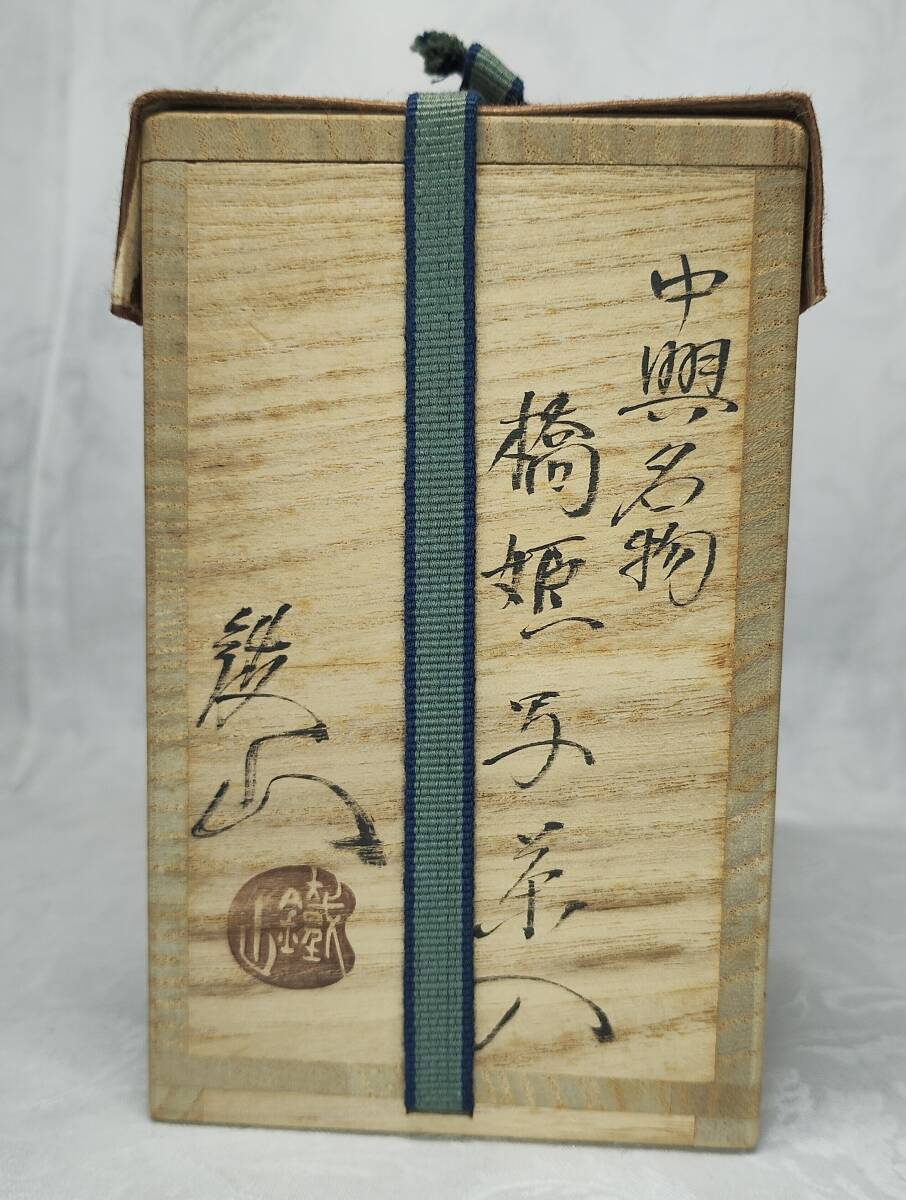 中興名物
橋姫写茶入
鉄山
鐵山